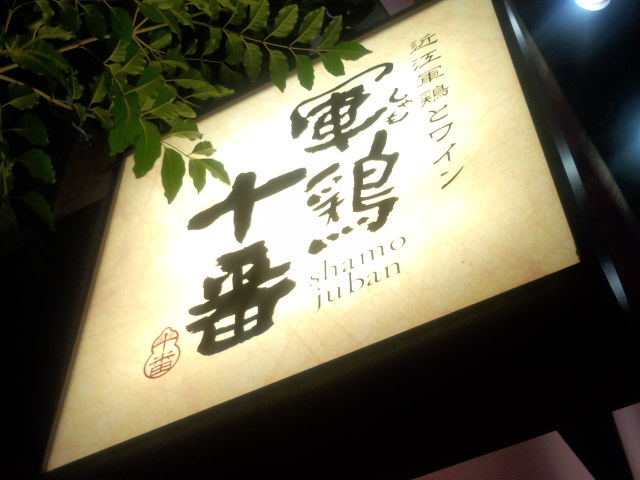 近江軍鶏とワイン
しゃも
軍鶏
十番
shamo
juban
十番